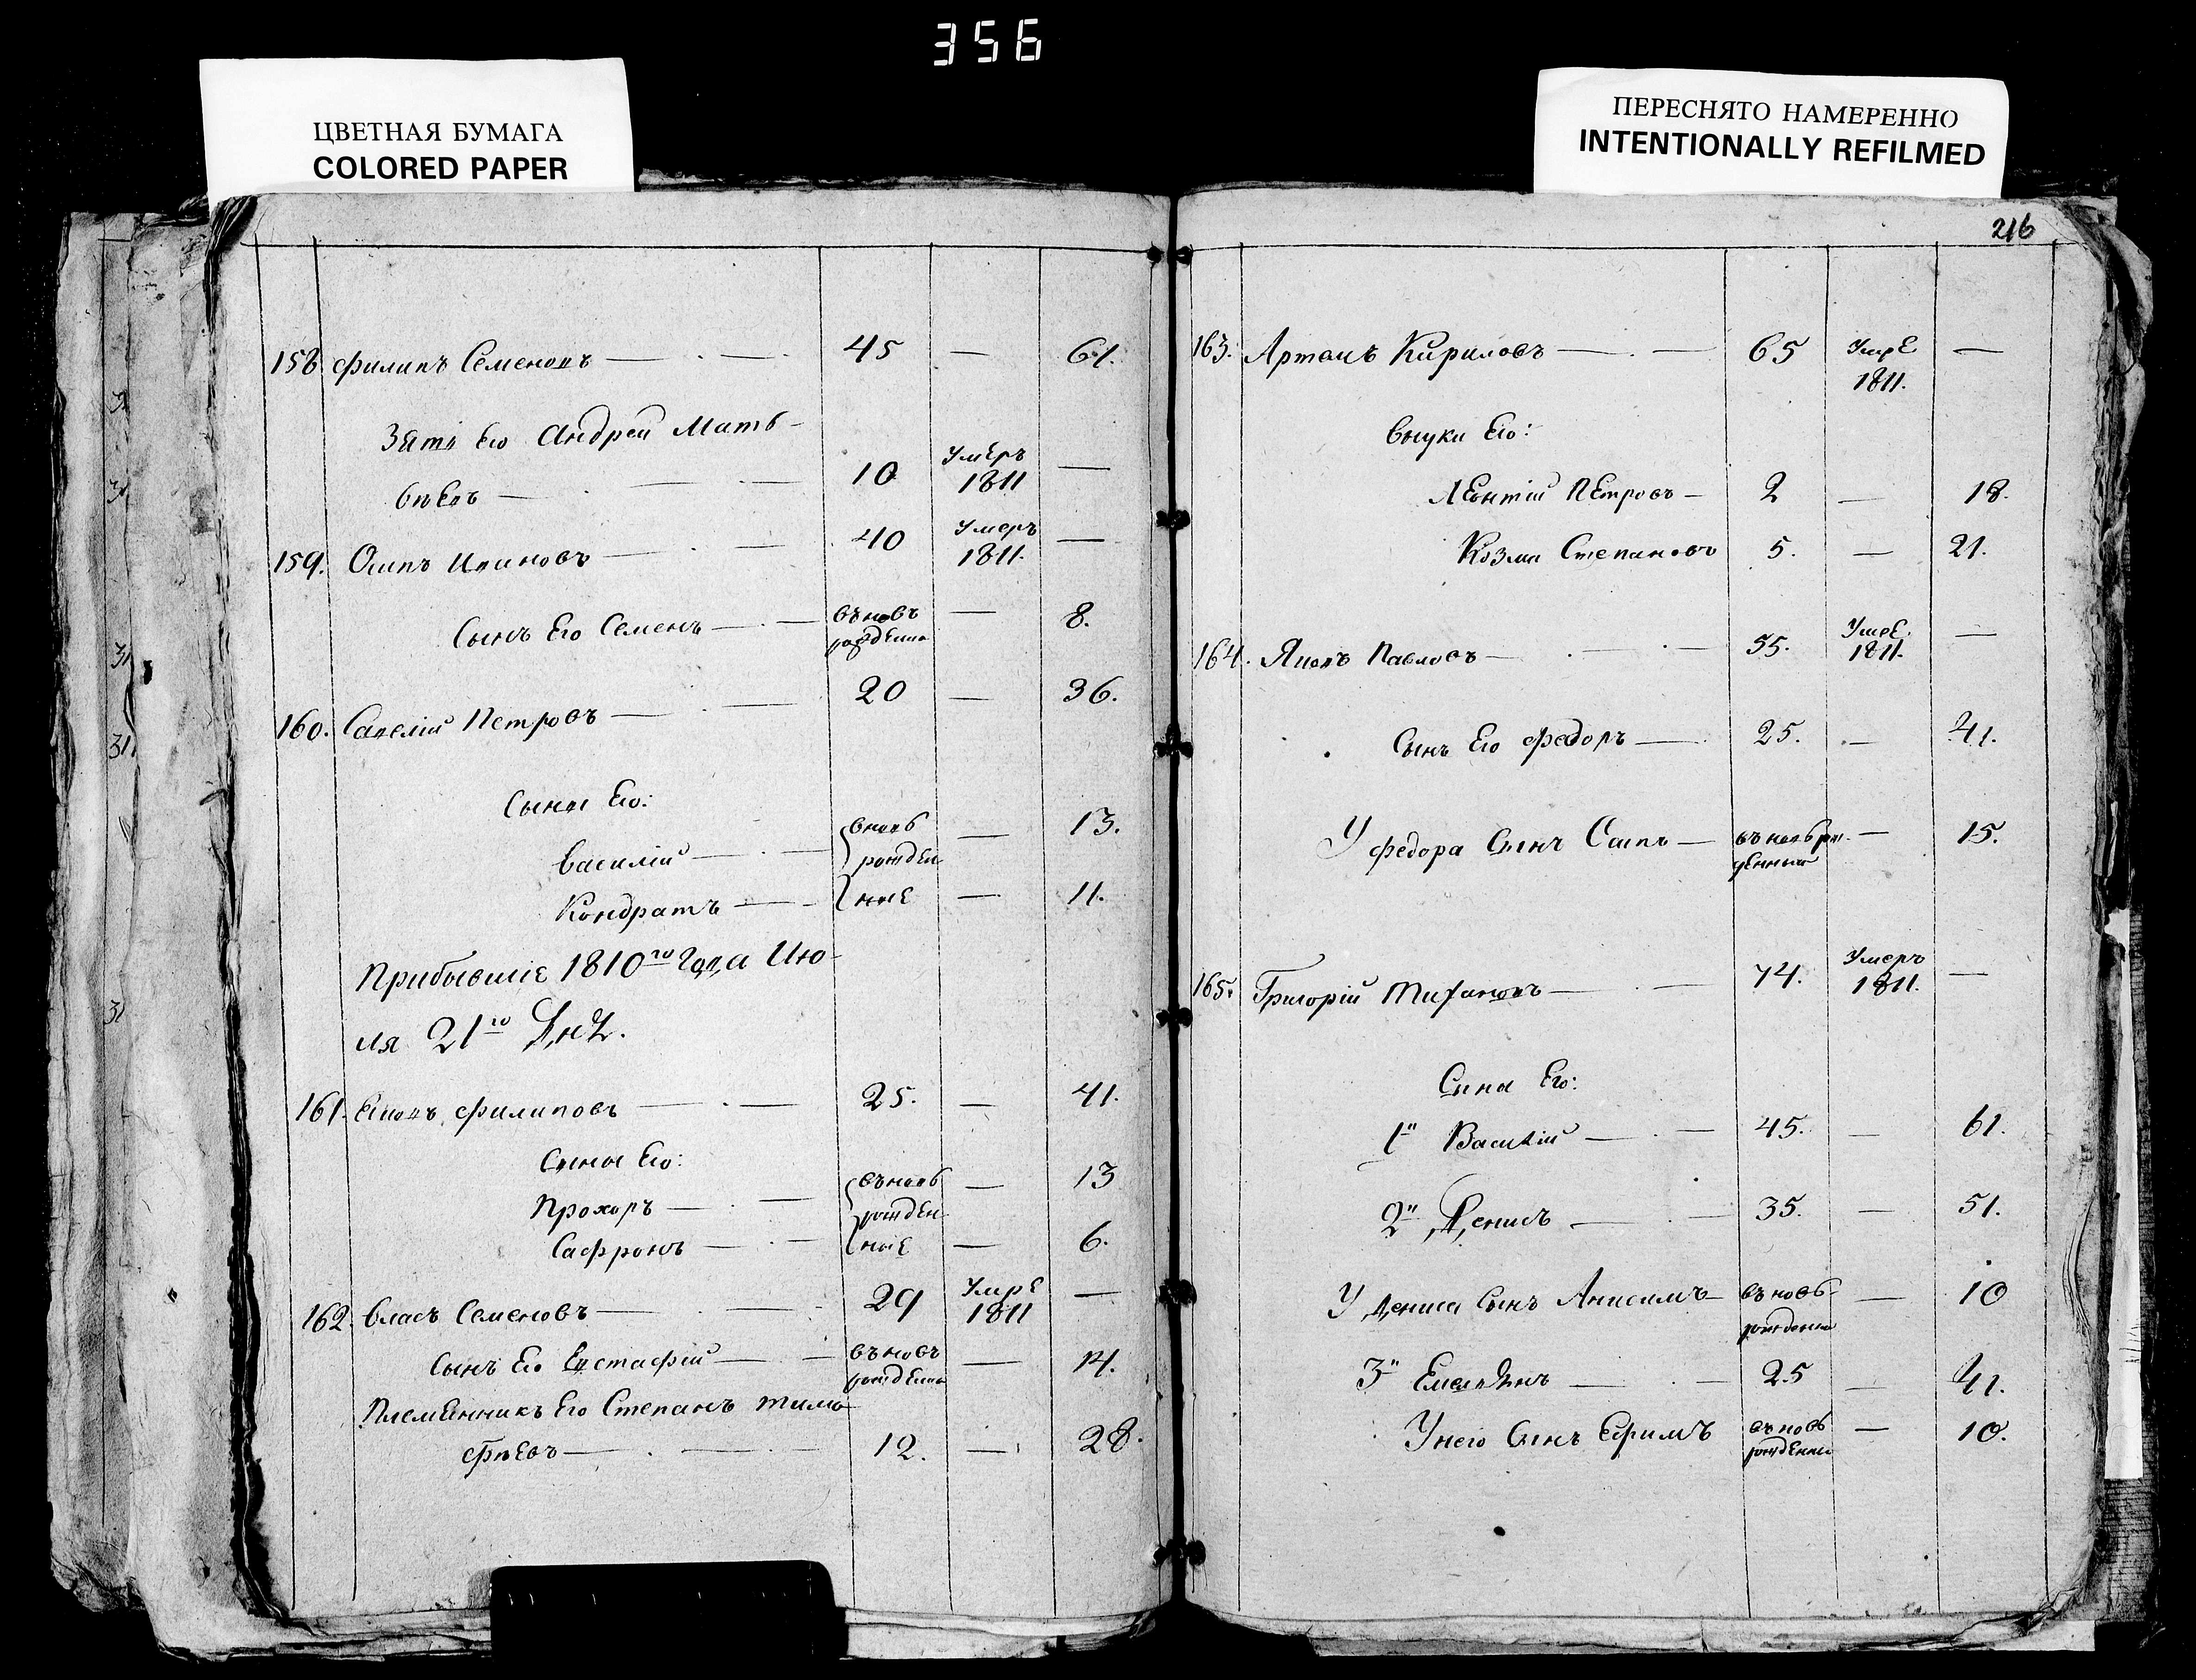 356
ЦВЕТНАЯ БУМАГА
COLORED PAPER
ПЕРЕСНЯТО НАМЕРЕННО
INTENTIONALLY REFILMED
158. Филипъ Семеновъ — 45 — 61.
Зять Его Андрей Матв-
ѣевъ — 10 Умеръ 1811 —
159. Осипъ Ивановъ — 40 Умеръ 1811. —
Сынъ Его Семенъ — въновь рожденъ — 8.
160. Савелій Петровъ — 20 — 36.
Сыны Его:
Василій — вновь рожден — 13.
Кондратъ — ные — 11.
Прибывшіе 1810го Года Ию-
ля 21го Дня.
161. филиповъ — 25. — 41.
Сыны Его:
Прохоръ — въновь рожден — 13
Сафронъ — ные — 6.
162. Власъ Семеновъ — 29 Умре 1811 —
Сынъ Его Евстафій — въновь рожденъ — 14.
Племенникъ Его Степанъ Тимо
фѣевъ — 12. — 28.
216
163. Артемъ Кириловъ — 65 Умре 1811. —
Внуки Его:
Леонтій Петровъ — 2 — 18.
Козма Степановъ 5. — 21.
164. Яковъ Павловъ — 55. Умре 1811. —
Сынъ Его Федоръ — 25. — 41.
У Федора Сынъ Осипъ — въновь рож-
денный — 15.
165. Григорій Тихановъ — 74. Умеръ 1811. —
Сыны Его:
1й Василій — 45. — 61.
2й Денисъ — 35. — 51.
У Дениса Сынъ Анисимъ — въновь рожденны — 10
3й Емельянъ — 25 — 41.
У него Сынъ Ефимъ въновь рожденны — 10.